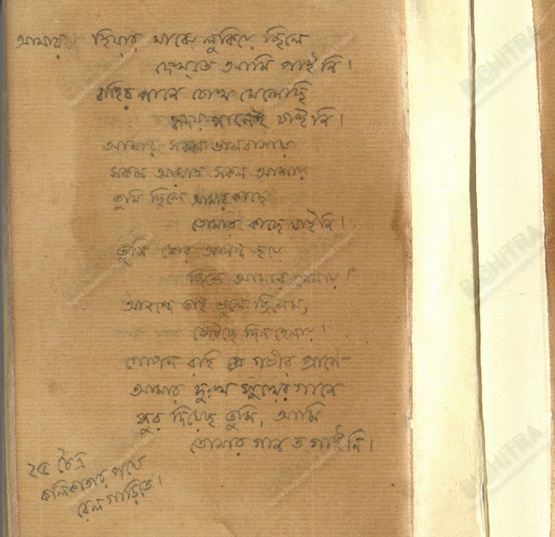 আমার হিয়ার মাঝে লুকিয়ে ছিলে
দেখতে আমি পাইনি।
বাহির পানে চোখ মেলেছি
হৃদয়পানেই চাইনি।
আমার সকল ভালবাসায়
সকল আঘাত সকল আশায়
তুমি ছিলে আমার কাছে
তোমার কাছে যাইনি।
তুমি মোর আনন্দ হয়ে
ছিলে আমার খেলায়।
আনন্দে তাই ভুলে ছিলেম,
কেটেছে দিন হেলায়।
গোপন রহি গভীর প্রাণে
আমার দুঃখ সুখের গানে
সুর দিয়েছ তুমি, আমি
তোমার গান ত গাইনি।
২৫ চৈত্র
কলিকাতার পথে
রেলগাড়িতে।
BICHITRA